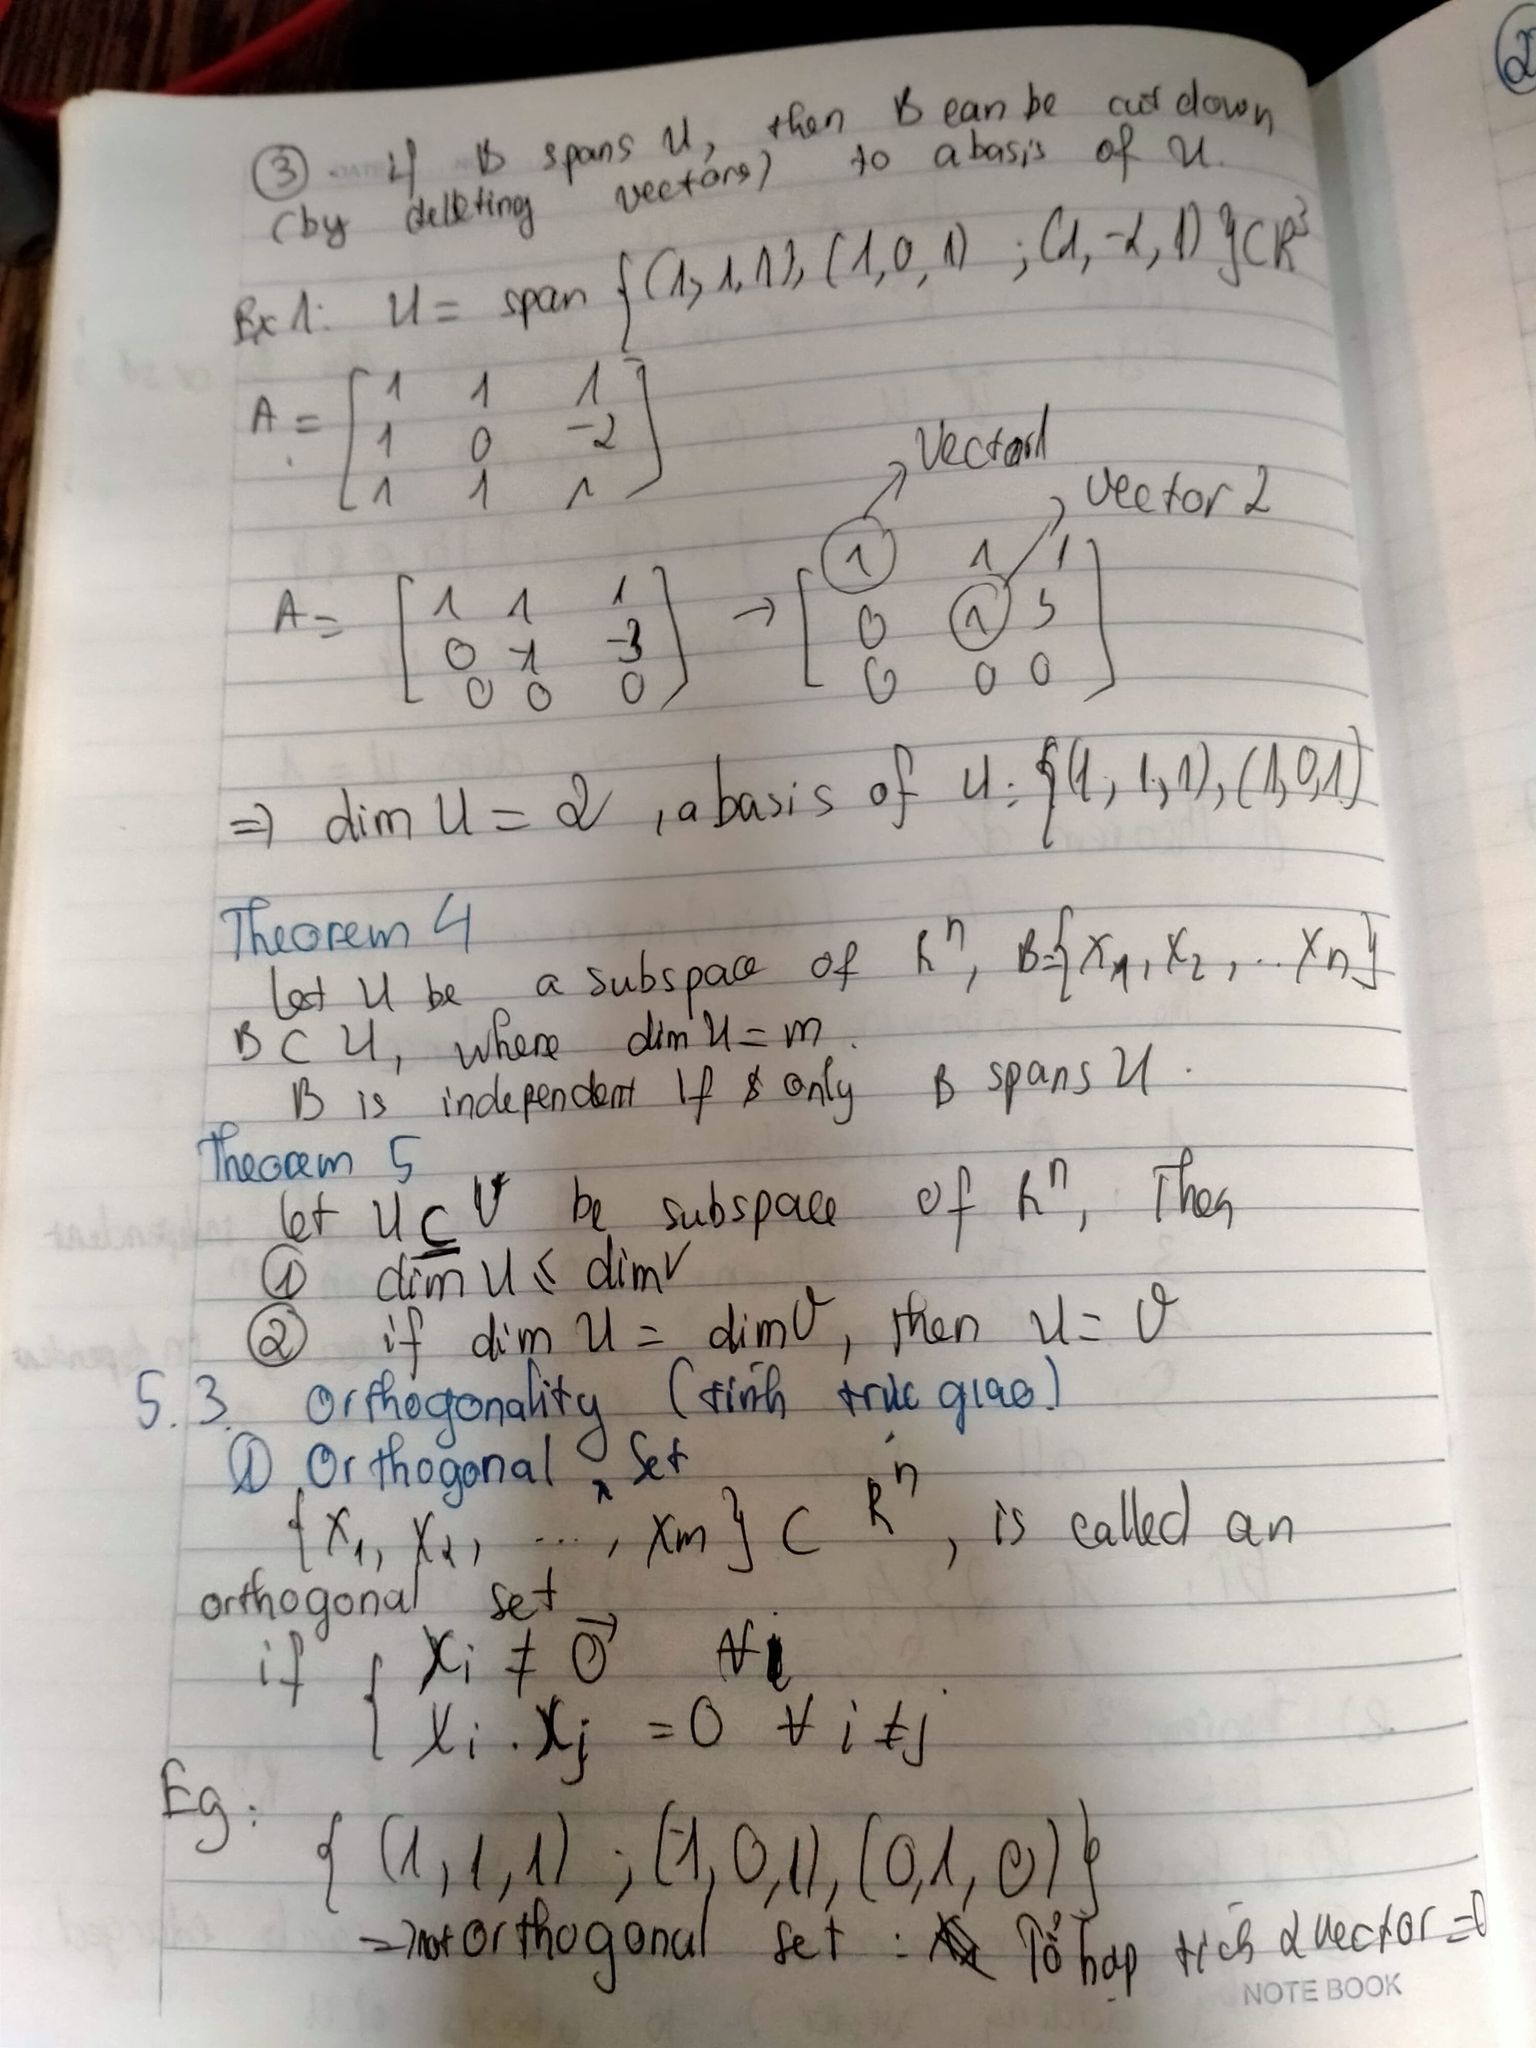 ③ if B spans U, then B can be cut down
(by deleting vectors) to a basis of U.
Ex 1: U = span {(1,1,1), (1,0,1) ; (1,-2,1)} ⊂ R³
A = [1 1 1
1 0 -2
1 1 1]
vector 1
vector 2
A = [1 1 1
0 -1 -3
0 0 0] → [1 1 1
0 1 3
0 0 0]
⇒ dim U = 2, a basis of U: {(1,1,1), (1,0,1)
Theorem 4
Let U be a subspace of Rⁿ, B={x₁, x₂, ... xₙ}
B ⊂ U, where dim U = m.
B is independent if & only B spans U.
Theorem 5
let U ⊆ V be subspace of Rⁿ, Then
① dim U ≤ dim V
② if dim U = dim V, then U = V
5.3. Orthogonality (tính trực giao)
① Orthogonal set
{x₁, x₂, ..., xm} ⊂ Rⁿ, is called an
orthogonal set
if { xi ≠ 0⃗ ∀i
xi . xj = 0 ∀ i ≠ j
Eg:
{(1,1,1) ; (-1,0,1), (0,1,0)}
⇒ not orthogonal set : Tổ hợp tích 2 vector = 0
NOTE BOOK